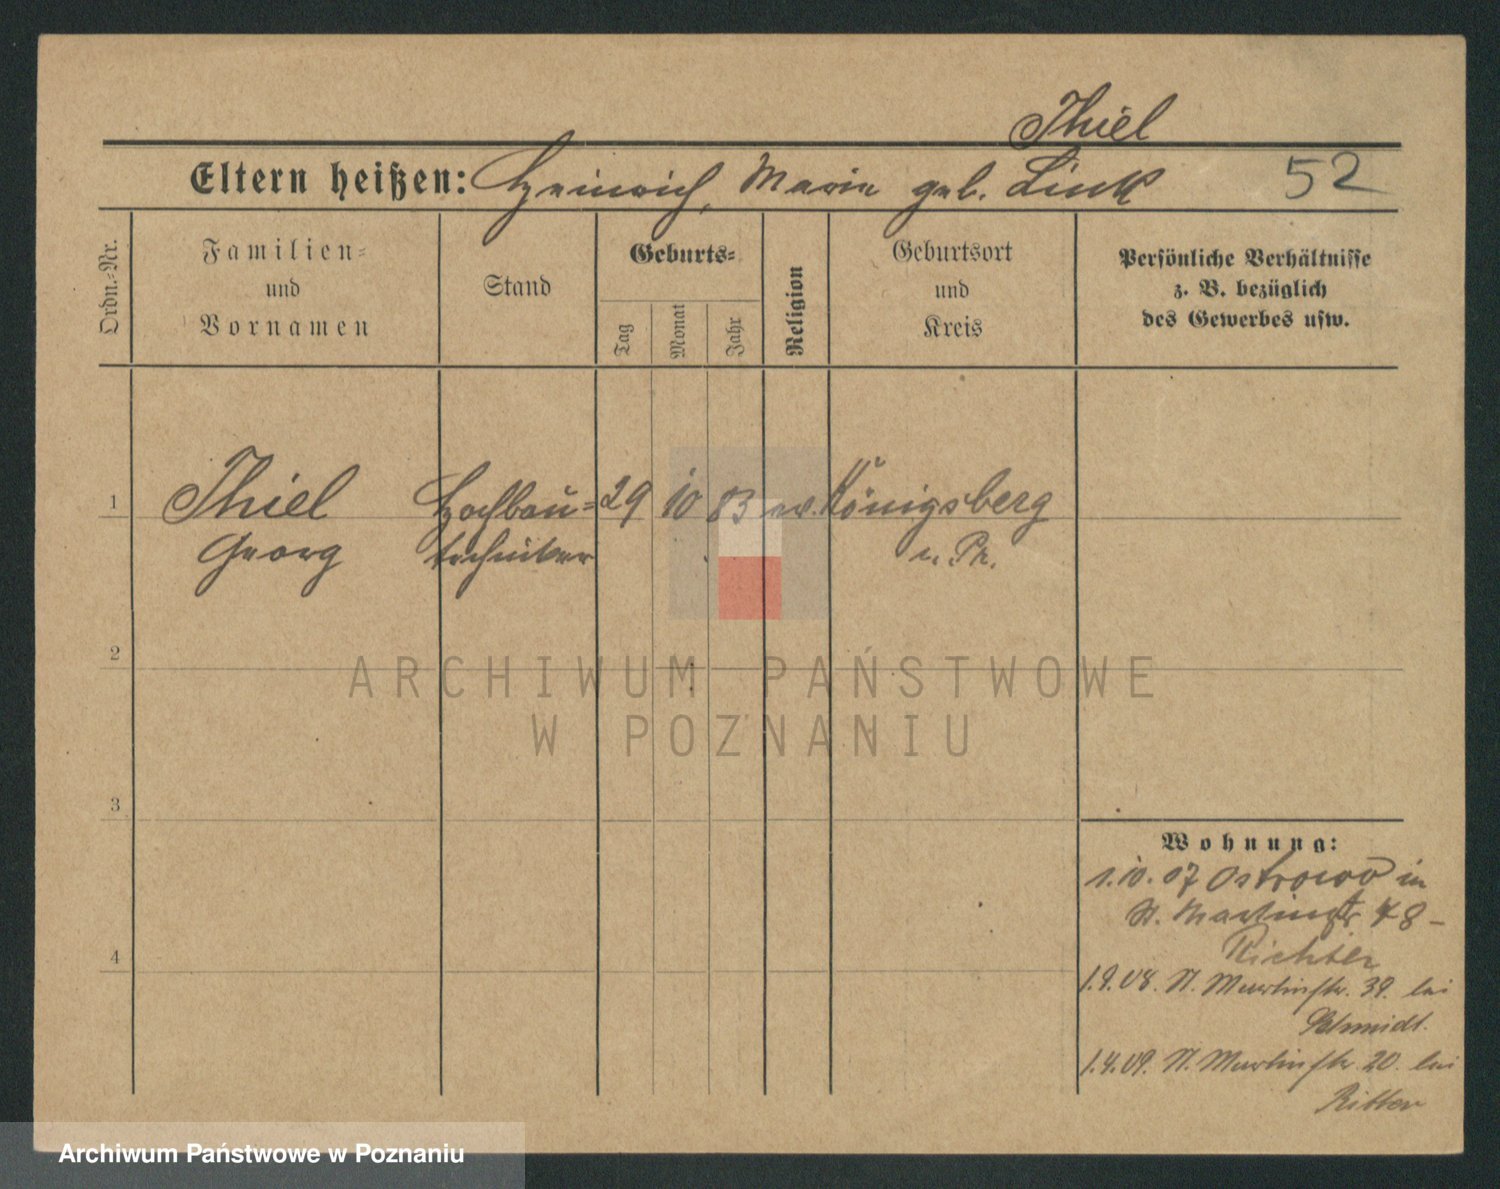 Thiel
Eltern heißen: Heinrich, Marie geb. Link 52
Ordn.=Nr.
Familien=
und
Vornamen
Stand
Geburts=
Tag
Monat
Jahr
Religion
Geburtsort
und
Kreis
Persönliche Verhältnisse
z. B. bezüglich
des Gewerbes usw.
1 Thiel Hochbau= 29 10 83 ev. Königsberg
Georg techniker Pr.
2
3
4
ARCHIWUM PAŃSTWOWE
W POZNANIU
Wohnung:
1.10.07 Ostrowo in
St. Martinstr 48 -
Richter
1.9.08. St. Martinstr. 39. bei
Schmidt.
1.4.09. St. Martinstr. 20. bei
Ritter
Archiwum Państwowe w Poznaniu